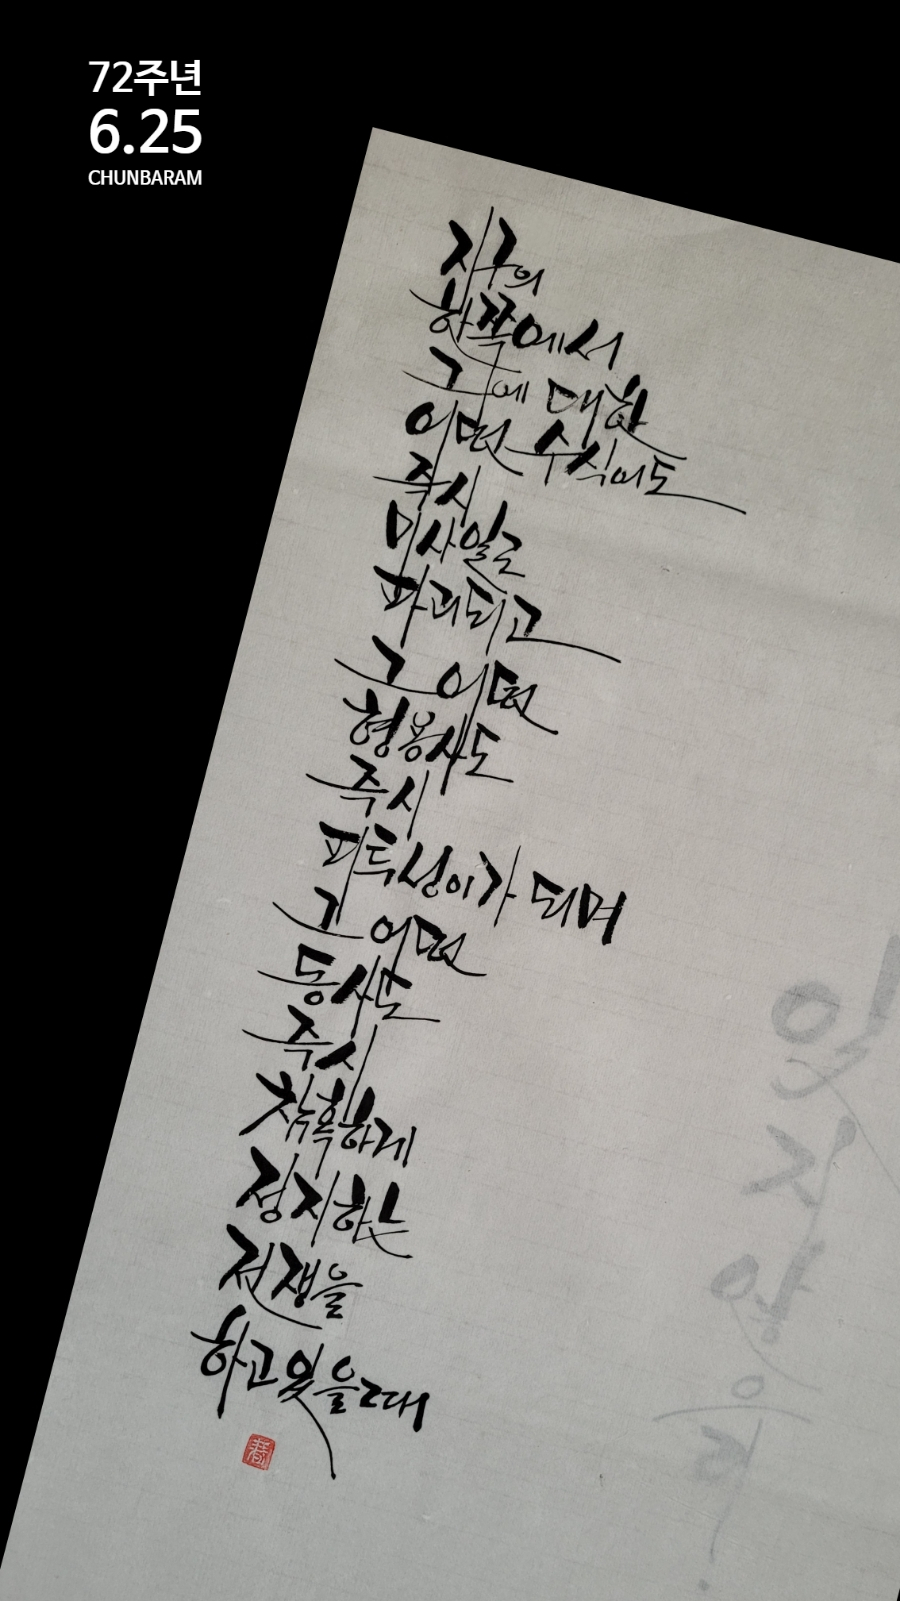 72주년
6.25
CHUNBARAM
지구의
한쪽에서
그에 대한
어떤 수식어도
즉시
미사일로
파괴되고
그 어떤
형용사도
즉시
피투성이가 되며
그 어떤
동사도
즉시
참혹하게
정지하는
전쟁을
하고있을때
春